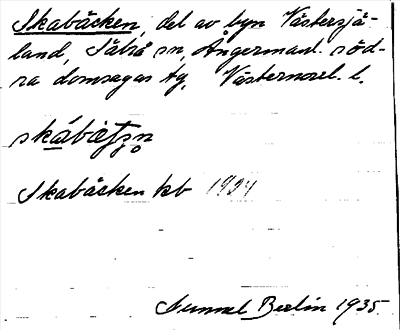 Skabäcken, del av byn Västersjä-
land, Säbrå sn, Ångermanl. söd-
ra domsagas tg, Västernorrl. l.
Skabäcken kb 1934
Gunnel Berlin 1935